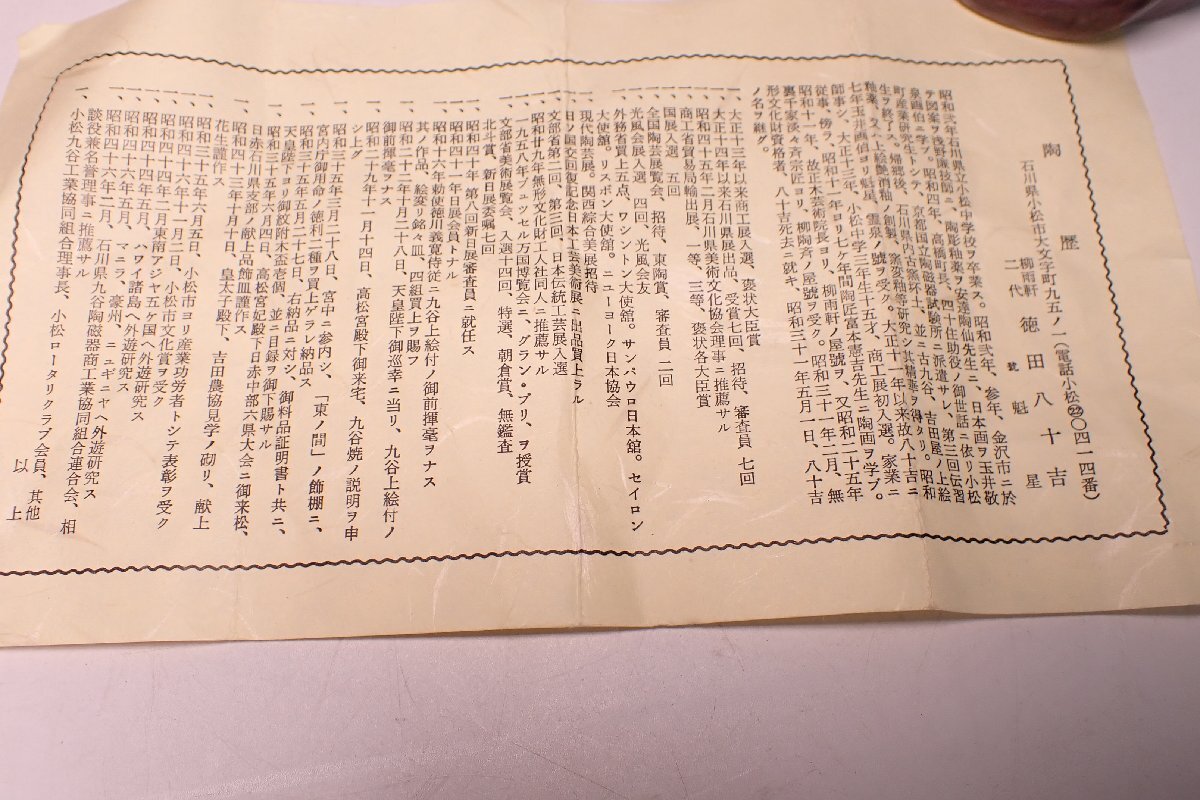 陶歴
石川県小松市大文字町九五ノ一(電話小松㉒〇四一四番)
柳雨軒
二代 徳田八十吉
號 魁星
昭和弐年石川県立小松中学校ヲ卒業ス。昭和弐年、参年、金沢市ニ於
テ図案ヲ浅野廉技師ニ、陶彫釉薬ヲ安達陶仙先生ニ、日本画ヲ玉井敬
泉画伯ニ学ブ。昭和四年、高橋町長、四十住助役ノ御世話ニ依リ小松
町産業研究生トシテ、京都国立陶磁器試験所ニ派遣サレ、第三回伝習
生ヲ終了ス。帰郷後、石川県内古窯坏土、並ニ古九谷、吉田屋ノ上絵
釉薬、又ハ上絵艶消釉ノ創製、窯変釉等研究シ其精華ヲ得タリ。昭和
七年玉井画伯ヨリ魁星、霊泉ノ號ヲ受ク。大正十一年以来故八十吉ニ
師事シ、大正十三年、小松中学三年生十五才、商工展初入選。家業ニ
従事、傍ラ、昭和十一年ヨリ七ケ年間陶匠富本憲吉先生ニ陶画ヲ学ブ。
昭和十一年、故正木芸術院長ヨリ、柳雨軒ノ屋號ヲ、又昭和二十五年
裏千家淡々斉宗匠ヨリ、柳陶斉ノ屋號ヲ受ク。昭和三十一年二月、無
形文化財資格者、八十吉死去ニ就キ、昭和三十一年五月一日、八十吉
ノ名ヲ継グ。
一、大正十三年以来商工展入選、褒状大臣賞
一、大正十四年以来石川県展出品、受賞七回、招待、審査員 七回
一、昭和四十五年二月石川県美術文化協会理事ニ推薦サル
一、商工省貿易局輸出展、一等、三等、褒状各大臣賞
一、国展入選、五回
一、全国陶芸展覧会、招待、東陶賞、審査員 二回
一、光風会展入選、四回、光風会友
一、外務省買上五点、ワシントン大使館。サンパウロ日本館。セイロン
大使館。リスボン大使館。ニューヨーク日本協会
一、現代陶芸展。関西綜合美展招待
一、日ソ国交回復記念日本工芸美術展ニ出品買上ラル
一、文部省第二回、第三回、日本伝統工芸展入選
一、昭和廿九年無形文化財工人社同人ニ推薦サル
一、一九五八年ブュッセル万国博覧会ニ、グラン・プリ、ヲ授賞
一、文部省美術展覧会、入選十四回、特選、朝倉賞、無鑑査
北斗賞、新日展委嘱七回
一、昭和四十年、第八回新日展審査員ニ就任ス
一、昭和四十一年日展会員トナル
一、昭和十六年勅使徳川義寛侍従ニ九谷上絵付ノ御前揮毫ヲナス
其ノ作品、絵変リ銘々皿、四組買上ヲ賜フ
一、昭和二十二年十月二十八日、天皇陛下御巡幸ニ当リ、九谷上絵付ノ
御前揮毫ヲナス
一、昭和二十九年十一月十四日、高松宮殿下御来宅、九谷焼ノ説明ヲ申
シ上グ
一、昭和三十五年三月二十八日、宮中ニ参内シ、「東ノ間」ノ飾棚ニ、
宮内庁御用命ノ徳利二種ヲ買上ゲラレ納品ス
一、昭和三十五年五月二十七日、右納品ニ対シ、御料品証明書ト共ニ、
天皇陛下ヨリ御紋附木盃壱個、並ニ目録ヲ御下賜サル
一、昭和三十五年六月四日、高松宮妃殿下日赤中部六県大会ニ御来松、
日赤石川県支部ノ献上品飾皿謹作ス
一、昭和四十三年十月十日、皇太子殿下、吉田農協見学ノ砌リ、献上
花生謹作ス
一、昭和三十五年六月五日、小松市ヨリ産業功労者トシテ表彰ヲ受ク
一、昭和四十六年十一月二日、小松市文化賞ヲ受ク
一、昭和四十二年二月東南アジヤ五ケ国ヘ外遊研究ス
一、昭和四十四年五月、ハワイ諸島ヘ外遊研究ス
一、昭和四十六年五月、マニラ、豪州、ニュギニヤヘ外遊研究ス
一、昭和四十六年二月、石川県九谷陶磁器商工業協同組合連合会、相
談役兼名誉理事ニ推薦サル
一、小松九谷工業協同組合理事長、小松ロータリクラブ会員、其他
以上